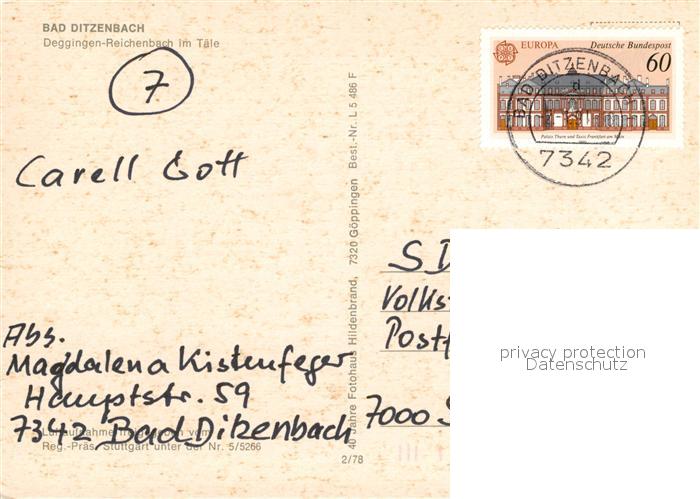 BAD DITZENBACH
Deggingen-Reichenbach im Täle
7
Carell Gott
Abs.
Magdalena Kistenfeger
Hauptstr. 59
7342 Bad Ditzenbach
Reg.-Präs. Stuttgart unter der Nr. 5/5266
2/78
40 Jahre Fotohaus Hildenbrand, 7320 Göppingen Best.-Nr. L 5 486 F
EUROPA Deutsche Bundespost
60
Palais Thurn und Taxis Frankfurt am Main
BAD DITZENBACH
d
7342
SD
Volks
Postf
7000 S
privacy protection
Datenschutz